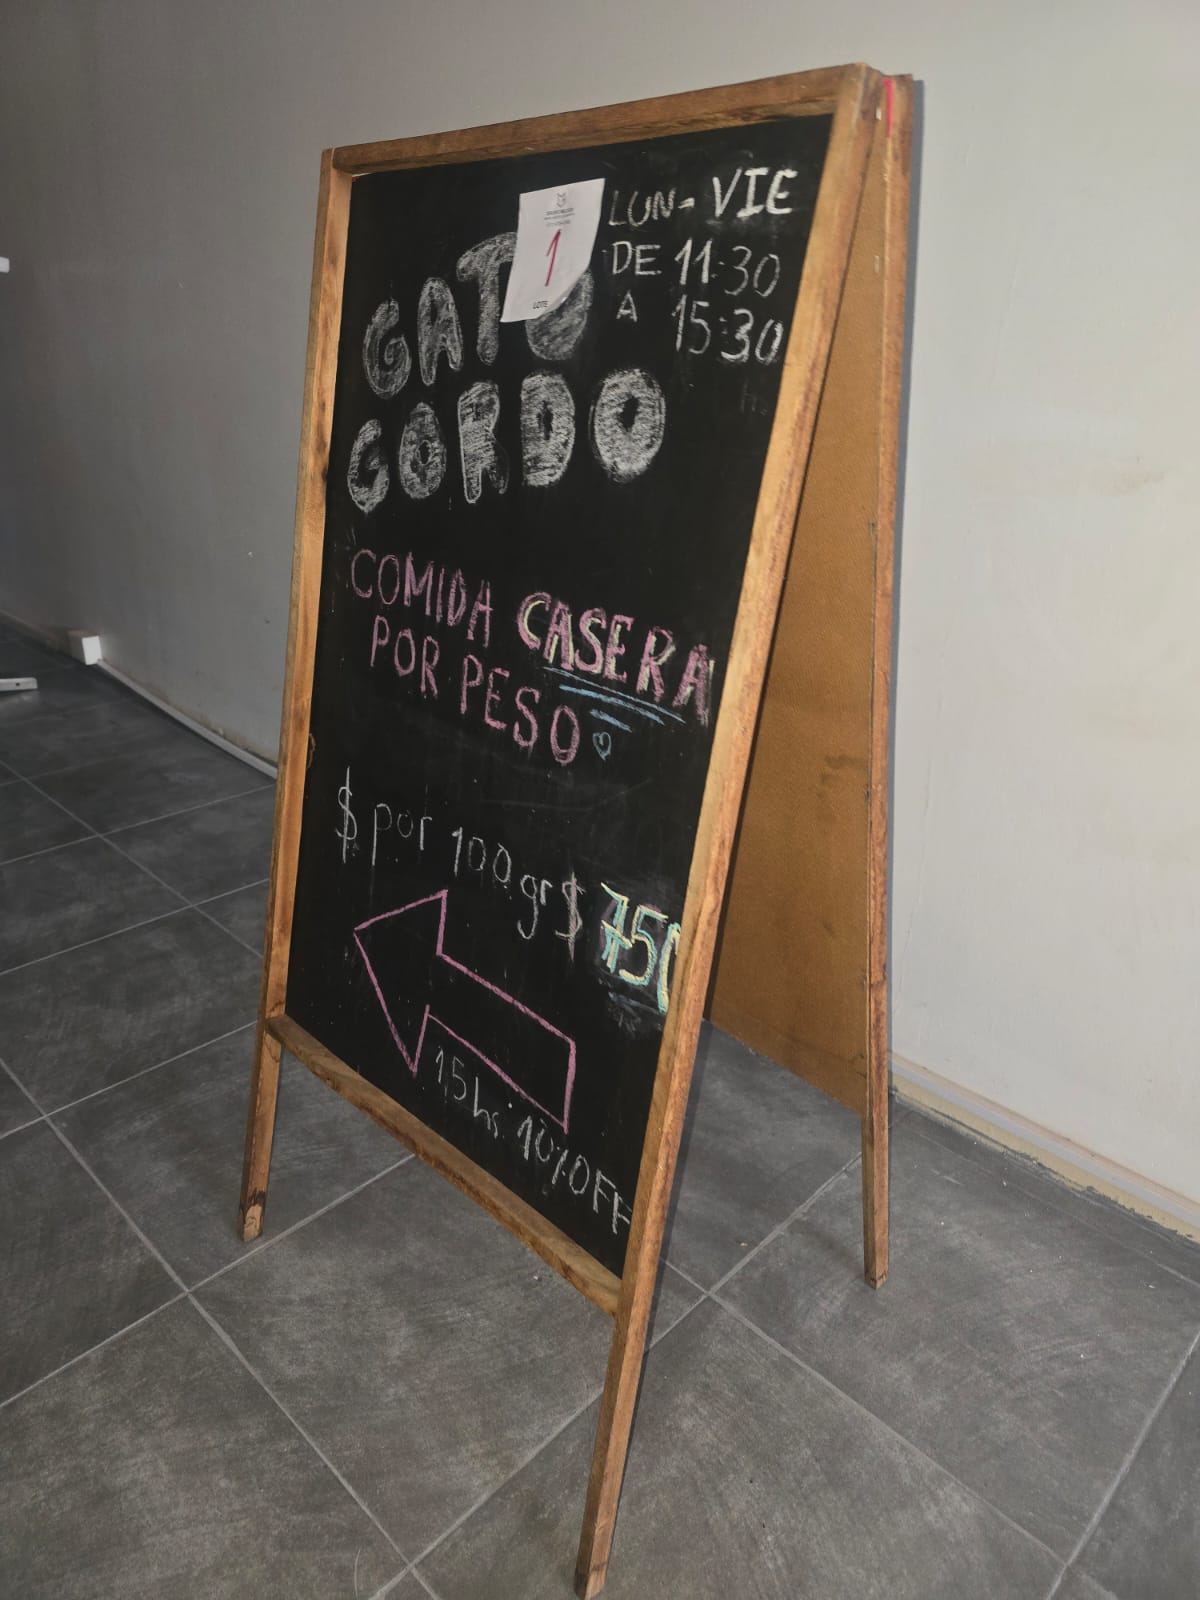 GATO
GORDO
1
LOTE
LUN- VIE
DE 11:30
A 15:30
COMIDA CASERA
POR PESO
$ por 100 gr $ 750
15 hs. 10% OFF